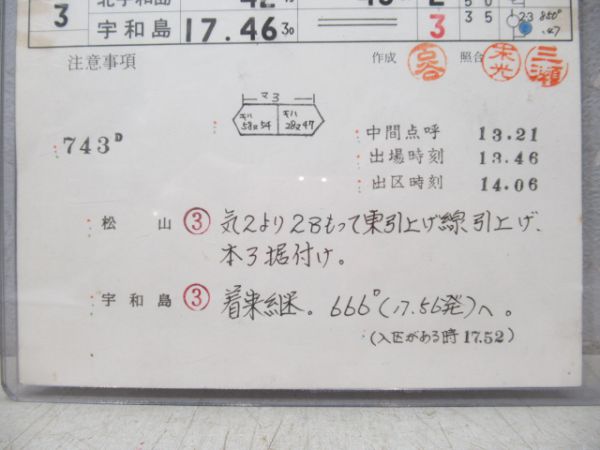 北宇和島
3
宇和島 17.46 30 3 35 23 850° .47
注意事項 作成 照合 三瀬
マ3
キハ 58×54 キハ 28×47
743D
中間点呼 13.21
出場時刻 13.46
出区時刻 14.06
松山 ③ 気2より28もって東引上げ線引上げ、
本3据付け。
宇和島 ③ 着来継。666D(17.56発)へ。
(入区がある時17.52)